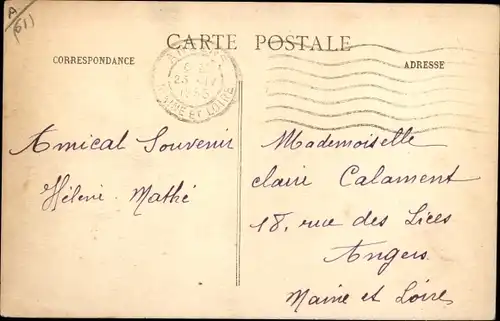 A
(61)
CARTE POSTALE
CORRESPONDANCE
ADRESSE
MAINE ET LOIRE
Amical Souvenir
Hélène Mathé
Mademoiselle
Claire Calament
18, rue des Lices
Angers
Maine et Loire